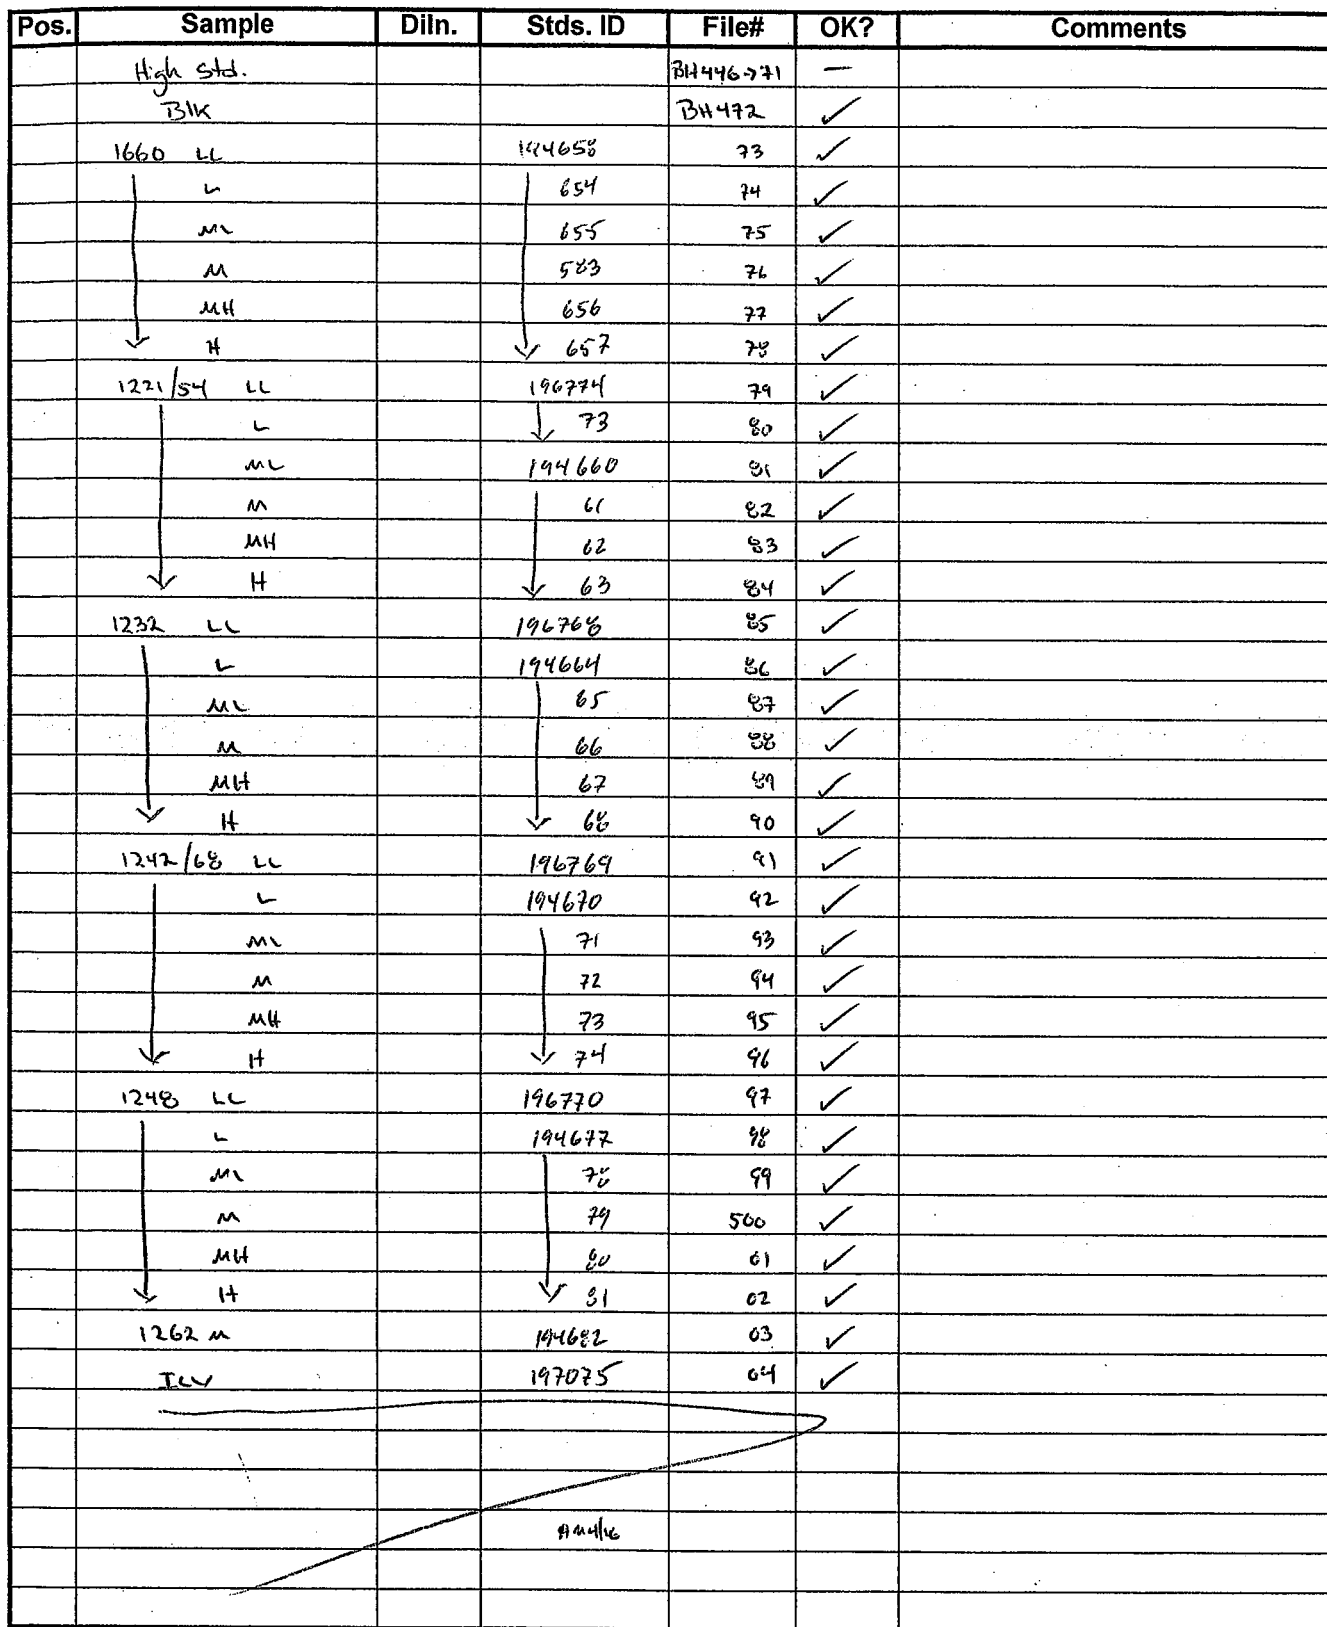 Pos. Sample Diln. Stds. ID File# OK? Comments
High Std. BH446→71 —
Blk BH472 ✓
1660 LL 194658 73 ✓
L 654 74 ✓
ML 655 75 ✓
M 583 76 ✓
MH 656 77 ✓
H 657 78 ✓
1221/54 LL 196774 79 ✓
L 73 80 ✓
ML 194660 81 ✓
M 61 82 ✓
MH 62 83 ✓
H 63 84 ✓
1232 LL 196768 85 ✓
L 194664 86 ✓
ML 65 87 ✓
M 66 88 ✓
MH 67 89 ✓
H 68 90 ✓
1242/68 LL 196769 91 ✓
L 194670 92 ✓
ML 71 93 ✓
M 72 94 ✓
MH 73 95 ✓
H 74 96 ✓
1248 LL 196770 97 ✓
L 194677 98 ✓
ML 78 99 ✓
M 79 500 ✓
MH 80 01 ✓
H 81 02 ✓
1262 M 194682 03 ✓
ICV 197075 04 ✓